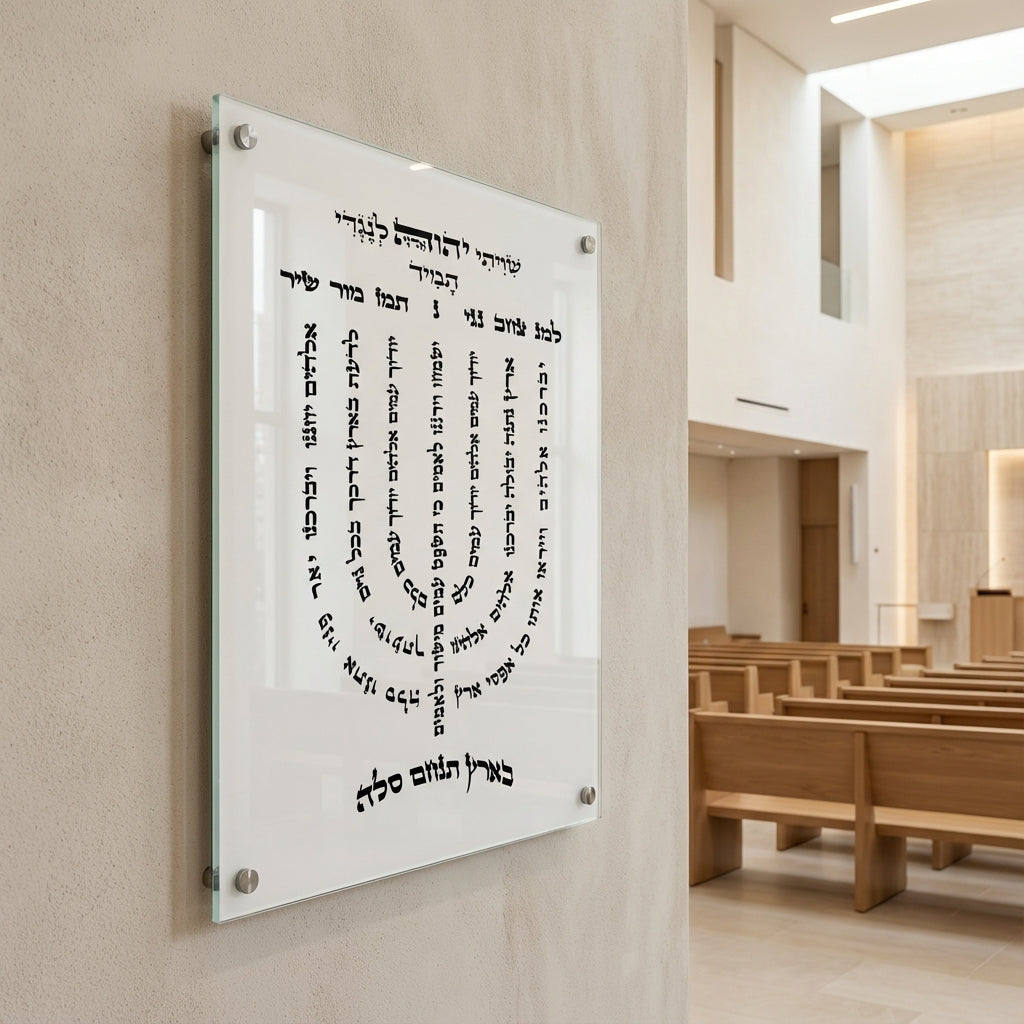 שויתי יהוה לנגדי
תמיד
תמז מור שיר
יברכנו אלהים וייראו אותו כל אפסי ארץ
ארץ נתנה יבולה יברכנו אלהים אלהינו
יודוך עמים אלהים יודוך עמים כלם
ישמחו וירננו לאמים כי תשפט עמים מישור ולאמים
יודוך עמים אלהים יודוך עמים כלם
לדעת בארץ דרכך בכל גוים ישועתך
אלהים יחננו ויברכנו יאר פניו אתנו סלה
בארץ תנחם סלה